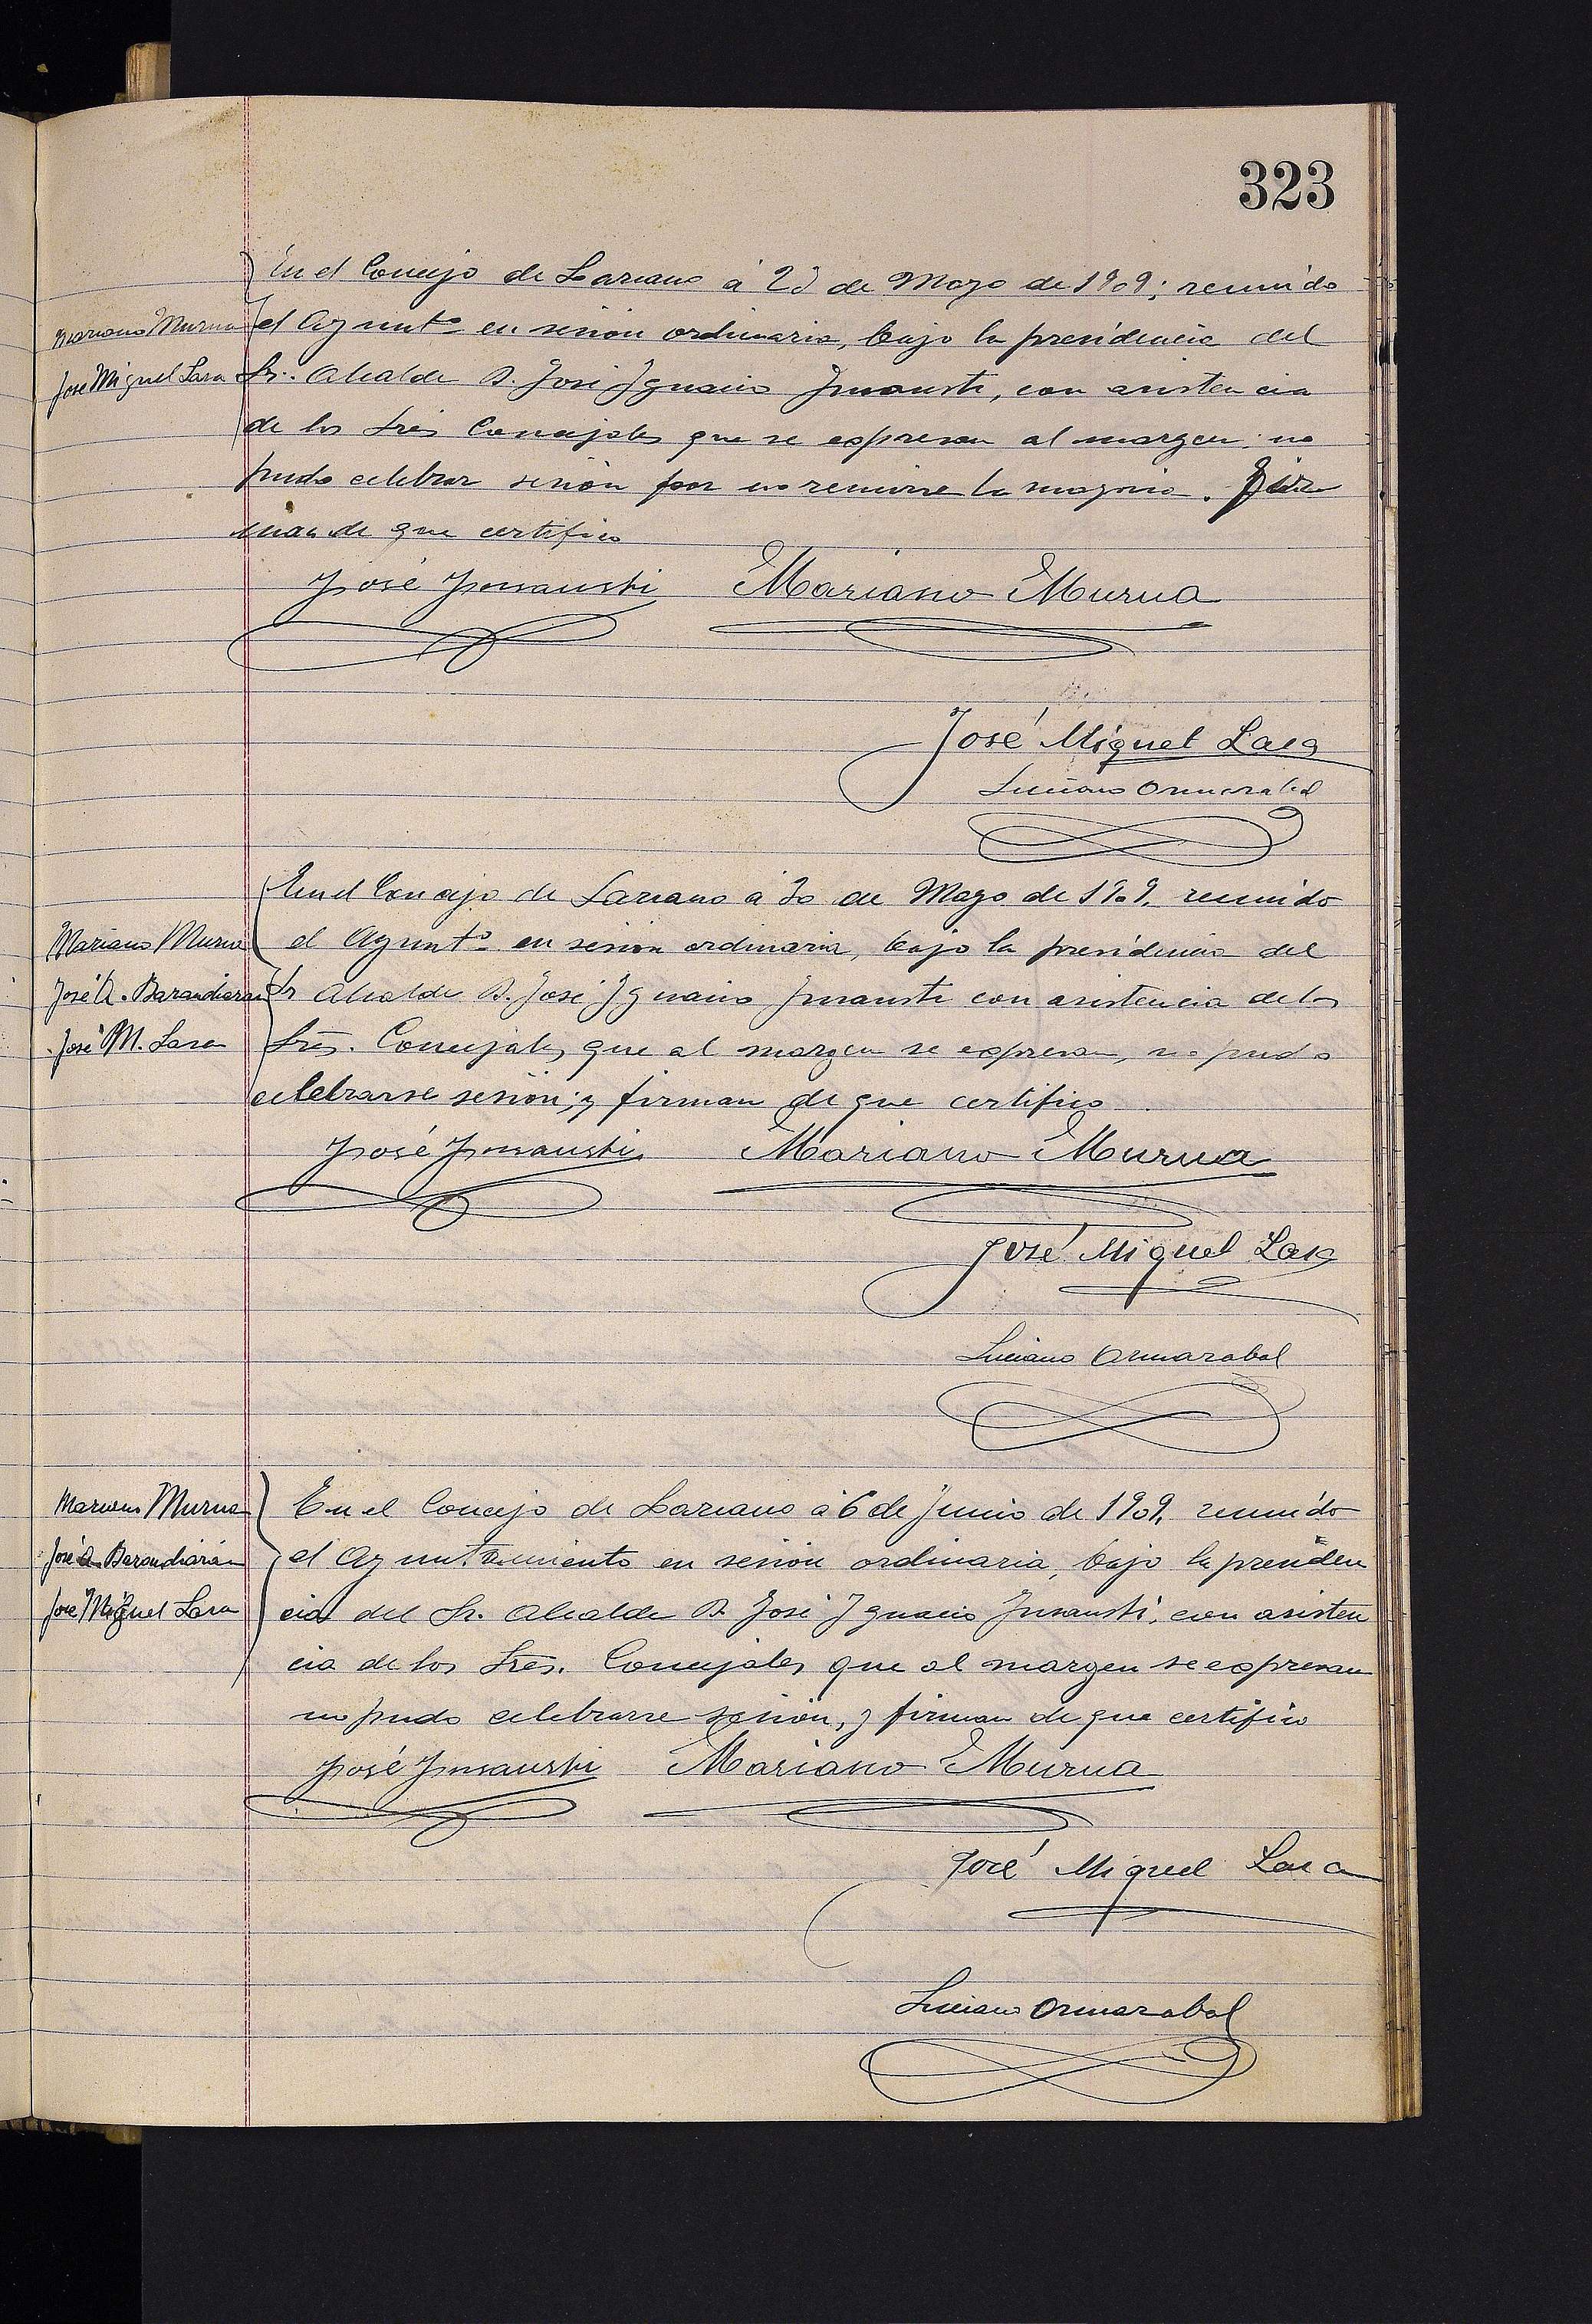 323
En el Concejo de Lazcano á 23 de Mayo de 1909; reunido
Mariano Murua
el Ayunt.º en sesion ordinaria, bajo la presidencia del
José Miguel Lasa
Sr. Alcalde D. José Ignacio Insausti, con asistencia
de los Sres Concejales que se expresan al margen: no
pudo celebrar sesión por no reunirse la mayoria. Fir
man de que certifico
José Insausti Mariano Murua
José Miguel Lasa
Luciano Ormazabal
En el Concejo de Lazcano á 30 de Mayo de 1909. reunido
Mariano Murua
el Ayunt.º en sesion ordinaria, bajo la presidencia del
José A. Barandiaran
Sr Alcalde D. José Ignacio Insausti con asistencia de los
José M. Lasa
Sres. Concejales que al margen se expresan, no pudo
celebrarse sesión; y firman de que certifico
José Insausti Mariano Murua
José Miguel Lasa
Luciano Ormazabal
Mariano Murua
En el Concejo de Lazcano á 6 de Junio de 1909. reunido
José A Barandiarán
el Ayuntamiento en sesión ordinaria, bajo la presiden
José Miguel Lasa
cia del Sr. Alcalde D. José Ignacio Insausti, con asisten
cia de los Sres. Concejales que al margen se expresan
no pudo celebrarse sesión, y firman de que certifico
José Insausti Mariano Murua
José Miguel Lasa
Luciano Ormazabal